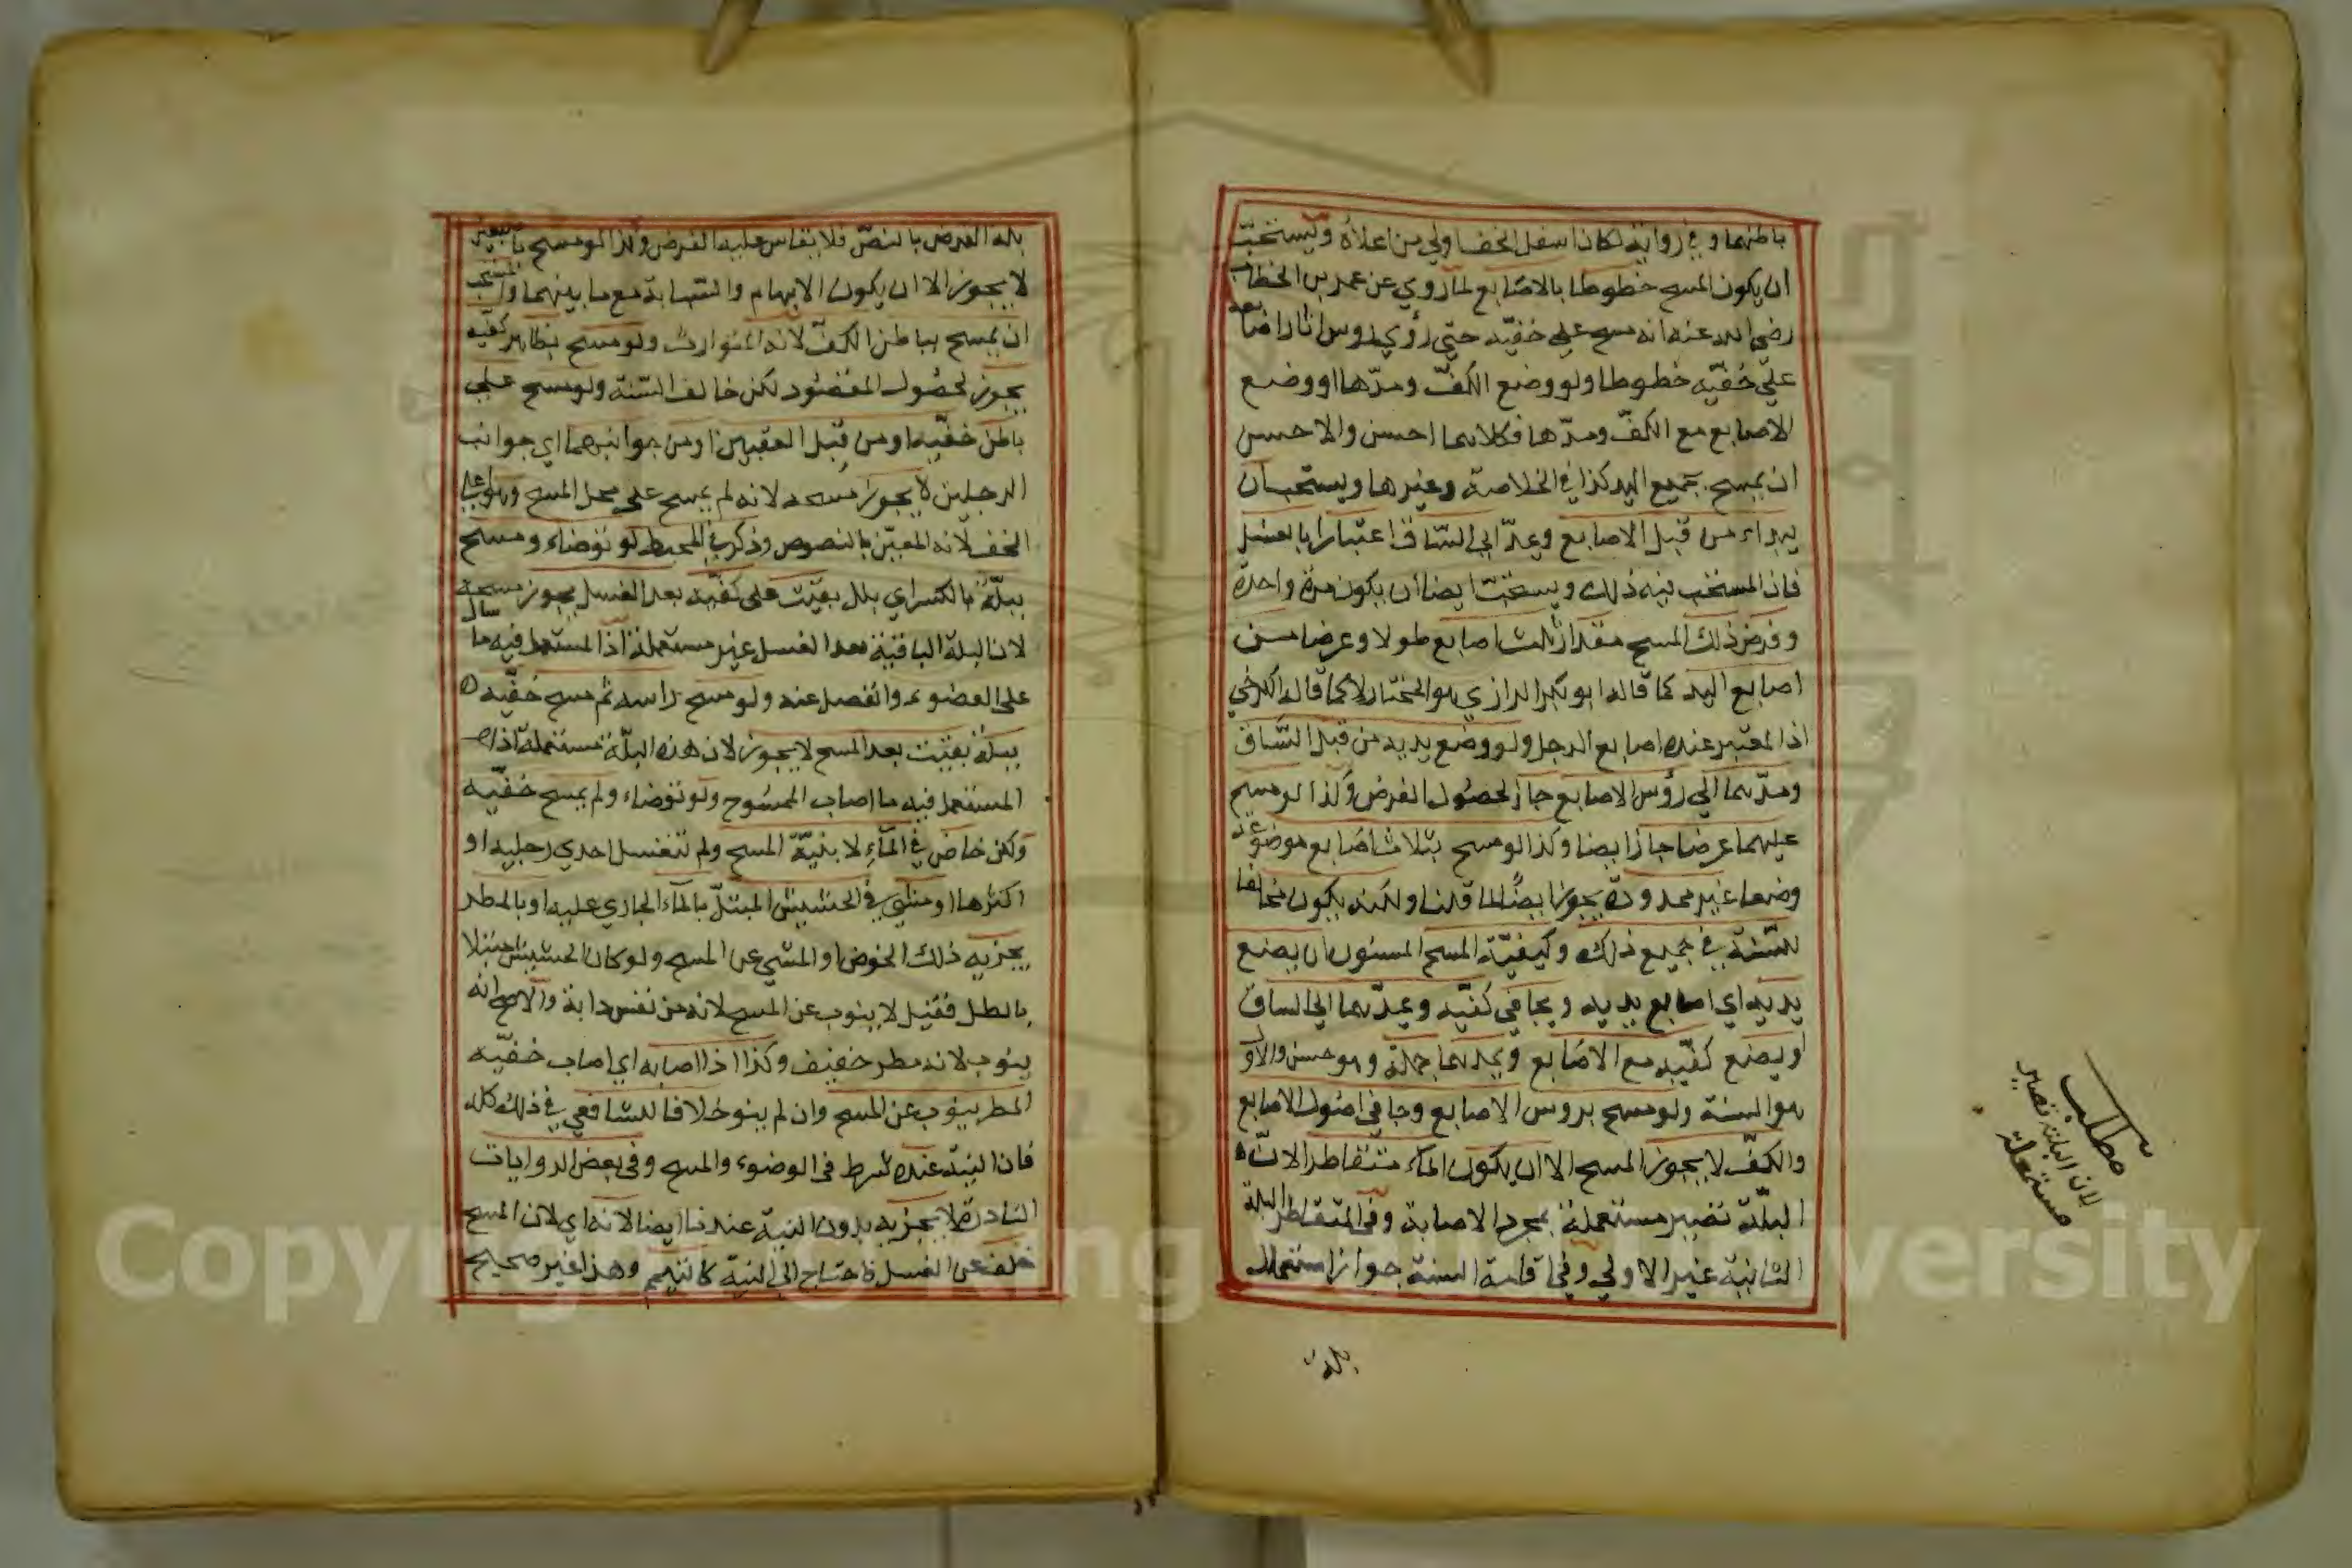 باطنهما وفي رواية لكان اسفل الخف اولي من اعلاه ويستحب
ان يكون المسح خطوطا بالاصابع لما روي عن عمر بن الخطاب
رضي الله عنه انه مسح علي خفيه حتي رؤي روس اثار اصابعه
علي خفيه خطوطا ولو وضع الكف ومدها او وضع
الاصابع مع الكف ومدها فكلاهما احسن والاحسن
ان يمسح بجميع اليد كذا في الخلاصة وغيرها ويستحب ان
يبداء من قبل الاصابع ويمد الي الساق اعتبارا بالغسل
فان المستحب فيه ذلك ويستحب ايضا ان يكون مرة واحدة
وفرض ذلك المسح مقدار ثلث اصابع طولا وعرضا من
اصابع اليد كما قاله ابو بكر الرازي هو المختار لا كما قاله الكرخي
اذ المعتبر عنده اصابع الرجل ولو وضع يديه من قبل الساق
ومدهما الي رؤس الاصابع جاز لحصول الفرض وكذا لو مسح
عليهما عرضا جاز ايضا وكذا لو مسح بثلاث اصابع موضوعة
وضعا غير محدودة يجوز ايضا لما قلنا ولكنه يكون مخالفا
للسنة في جميع ذلك وكيفية المسح المسنون ان يضع
يديه اي اصابع يديه ويجافي كفيه ويمدهما الي الساق
او يضع كفيه مع الاصابع ويمدهما جملة وهو حسن والاو
هو السنة ولو مسح بروس الاصابع وجافي اصول الاصابع
والكف لا يجوز المسح الا ان يكون الماء متقاطرا لان
البلة تصير مستعملة بمجرد الاصابة وفي المتقاطر البلة
الثانية غير الاولي وفي اقامة السنة جواز استعمال
مطلب
لان البلة تصير
مستعملة
بله الفرض بالنص فلا يقاس عليه الفرض وكذا لو مسح باصبعين
لا يجوز الا ان يكون الابهام والسبابة مع ما بينهما والمستحب
ان يمسح بباطن الكف لانه المتوارث ولو مسح بظاهر كفيه
يجوز لحصول المقصود لكن خالف السنة ولو مسح علي
باطن خفيه او من قبل العقبين او من جوانبهما اي جوانب
الرجلين لا يجوز مسحه لانه لم يمسح علي محل المسح وهو علي
الخف لانه المعين بالنصوص وذكر في المحيط لو توضاء ومسح
ببلة بالكسر اي بلل بقيت علي كفيه بعد الغسل يجوز مسحه
لان البلة الباقية بعد الغسل غير مستعملة اذ المستعمل فيه ما سال
علي العضو وانفصل عنه ولو مسح راسه ثم مسح خفيه
ببلة بقيت بعد المسح لا يجوز لان هذه البلة مستعملة اذا
المستعمل فيه ما اصاب الممسوح ولو توضاء ولم يمسح خفيه
ولكن خاض في الماء لا بنية المسح ولم تنغسل احدي رجليه او
اكثرها او مشي في الحشيش المبتل بالماء الجاري عليه او بالمطر
يجزيه ذلك الخوض او المشي عن المسح ولو كان الحشيش مبتلا
بالطل فقيل لا ينوب عن المسح لانه من نفس دابة والاصح انه
ينوب لانه مطر خفيف وكذا اذا اصابه اي اصاب خفيه
المطر ينوب عن المسح وان لم ينو خلافا للشافعي في ذلك كله
فان النية عنده شرط في الوضوء والمسح وفي بعض الروايات
النادرة لا يجزيه بدون النية عندنا ايضا لانه اي لان المسح
خلف عن الغسل فاحتاج الي النية كالتيمم وهذا غير صحيح
Copyright © King University